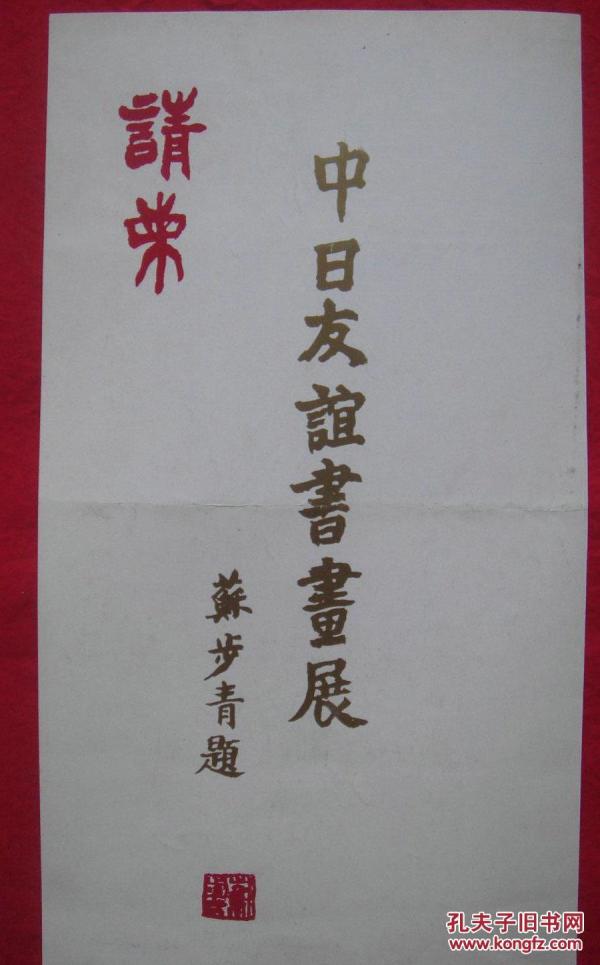 中日友誼書畫展
蘇步青題
請柬
孔夫子旧书网
www.kongfz.com